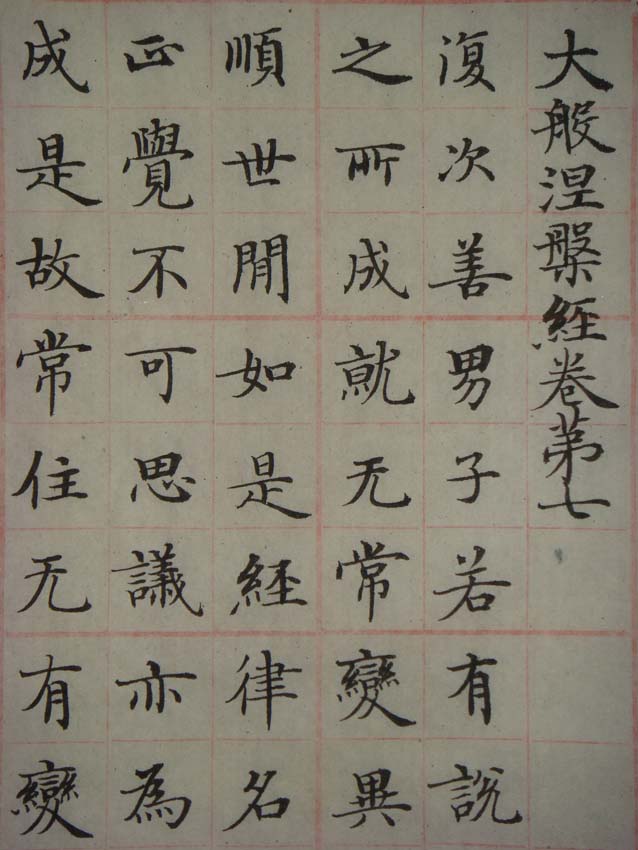 大般涅槃経卷第七
復次善男子若有說
之所成就无常變異
順世間如是経律名
正覺不可思議亦為
成是故常住无有變